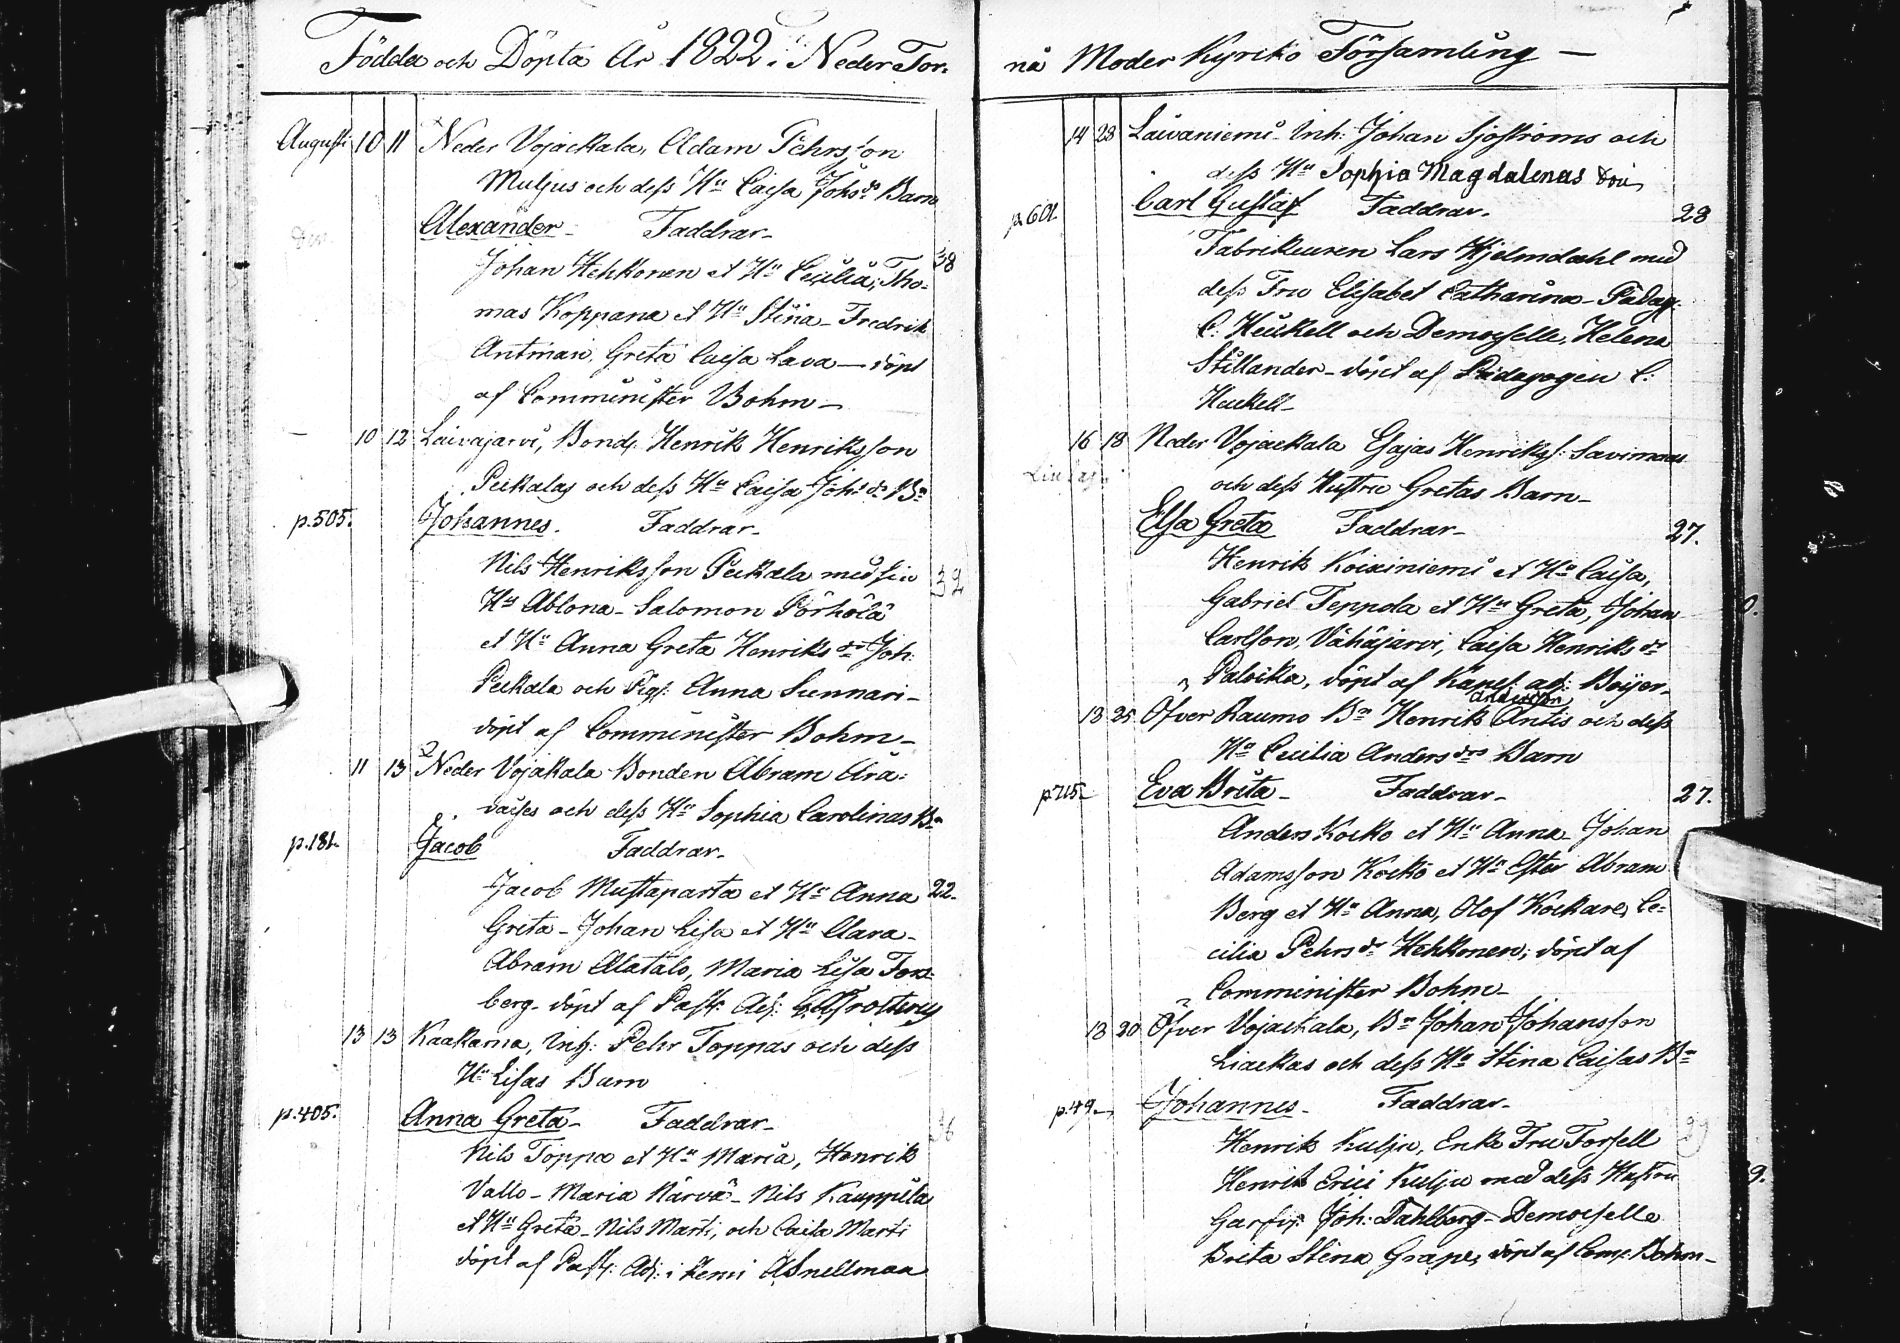 Födde och Döpta År 1822 i Neder Tor-
Augusti 10 11 Neder Vojackala, Adam Pehrsson
Muljus och dess Hu Caisa Johsdr Barn
Alexander Faddrar
38
Johan Hehkonen et Hu Cecilia, Tho-
mas Koppana et Hu Stina - Fredrik
Antman, Greta Caisa Lava - döpt
af Comminister Bohm -
10 12 Laivajarvi, Bond. Henrik Henriksson
Peckalas och dess Hu Caisa Johsdr Bn
p.505. Johannes. Faddrar -
Nils Henriksson Peckala med sin
32
Hu Ablona - Salomon Pörhölä
et Hu Anna Greta Henriksdr Joh:
Peckala och Pig: Anna Sunnari -
döpt af Comminister Bohm -
11 13 Neder Vojakala Bonden Abram
och dess Hu Sophia Carolinas Bn
p.181. Jacob Faddrar -
Jacob Mustaparta et Hu Anna 22.
Greta - Johan Lisa et Hu Clara -
Abram Alatalo, Maria Lisa Fors-
berg - döpt af Past: Adj:
13 13 Kaakama, Inh: Pehr Toppas och dess
Hu Lisas Barn
p.405. Anna Greta - Faddrar -
36
Nils Toppa et Hu Maria, Henrik
Vallo - Maria Närvä - Nils Kauppila
et Hu Greta - Nils Marti, och Caisa Marti
döpt af Past: Adj: i Kemi A Snellman
nå Moder Kyrko Församling -
14 28 Laivaniemi Inh: Johan Sjöströms och
dess Hu Sophia Magdalenas
p.601. Carl Gustaf Faddrar. 28
Fabrikeuren Lars Hjelmdahl med
dess Fru Elisabet Catharina - Pädag:
C: Heickell och Demoiselle, Helena
Stillander - döpt af Pädagogen C:
Heickell -
16 18 Neder Vojackala Esajas Henrikss: Savimaas
och dess Hustru Gretas Barn -
Elsa Greta Faddrar - 27.
Henrik Koivuniemi et Hu Caisa,
Gabriel Teppola et Hu Greta, Johan
Carlsson, Vähäjarvi, Caisa Henriksdr
Paloika, döpt af Kapel: adj: Boijer -
Andersson
18 25 Öfver Raumo Bn Henrik Antis och dess
Hu Cecilia Andersdrs Barn
p.715 Eva Brita - Faddrar - 27.
Anders Kocko et Hu Anna Johan
Adamsson Kocko et Hu Ester Abram
Berg et Hu Anna, Olof Kockare, Ce-
cilia Pehrsdr Hehkonen; döpt af
Comminister Bohm -
18 20 Öfver Vojackala, Bn Johan Johansson
Liackas och dess Hu Stina Caisas Bn
p.49 Johannes - Faddrar -
Henrik Kulju, Enke Fru Forsell
Henrik Erici Kulju med dess Hustru
Joh: Dahlberg - Demoiselle
Breta Stina Grape, döpt af Com: Bohm -